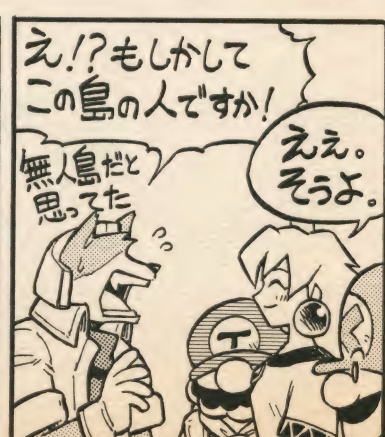 え!?もしかして
この島の人ですか!
無人島だと
思ってた
ええ。
そうよ。
T